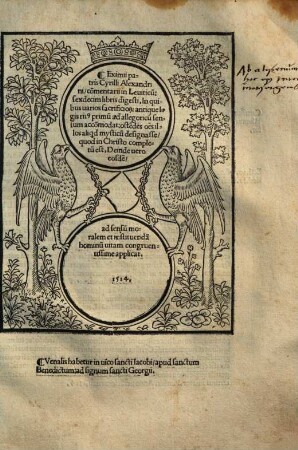 ¶ Eximii pa-
tris Cyrilli Alexandri
ni cōmentarii in Leuiticū:
sexdecim libris digesti, in qui
bus varios sacrificiorꝫ antiquę le
gis ritꝰ primū ad allegoricū sen
sum accōmodat: ostēdēs oēs il
los aliqd mysticū designasse:
quod in Christo comple
tū est. Deinde vero
eosdē
ad sensū mo
ralem et restituendā
hominū vitam congruen-
tissime applicat.
1514.
¶ Venalis habetur in vico sancti Iacobi: apud sanctum
Benedictum: ad signum sancti Georgii.